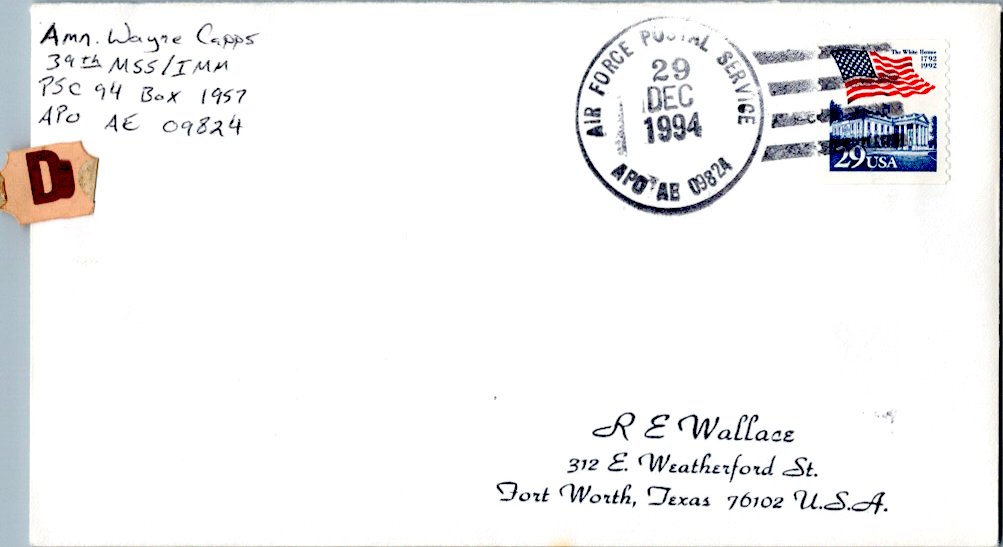 Amn. Wayne Capps
39th MSS/IMM
PSC 94 Box 1957
APO AE 09824
D
AIR FORCE POSTAL SERVICE
29
DEC
1994
APO AE 09824
The White House
1792
1992
29 USA
R E Wallace
312 E. Weatherford St.
Fort Worth, Texas 76102 U.S.A.